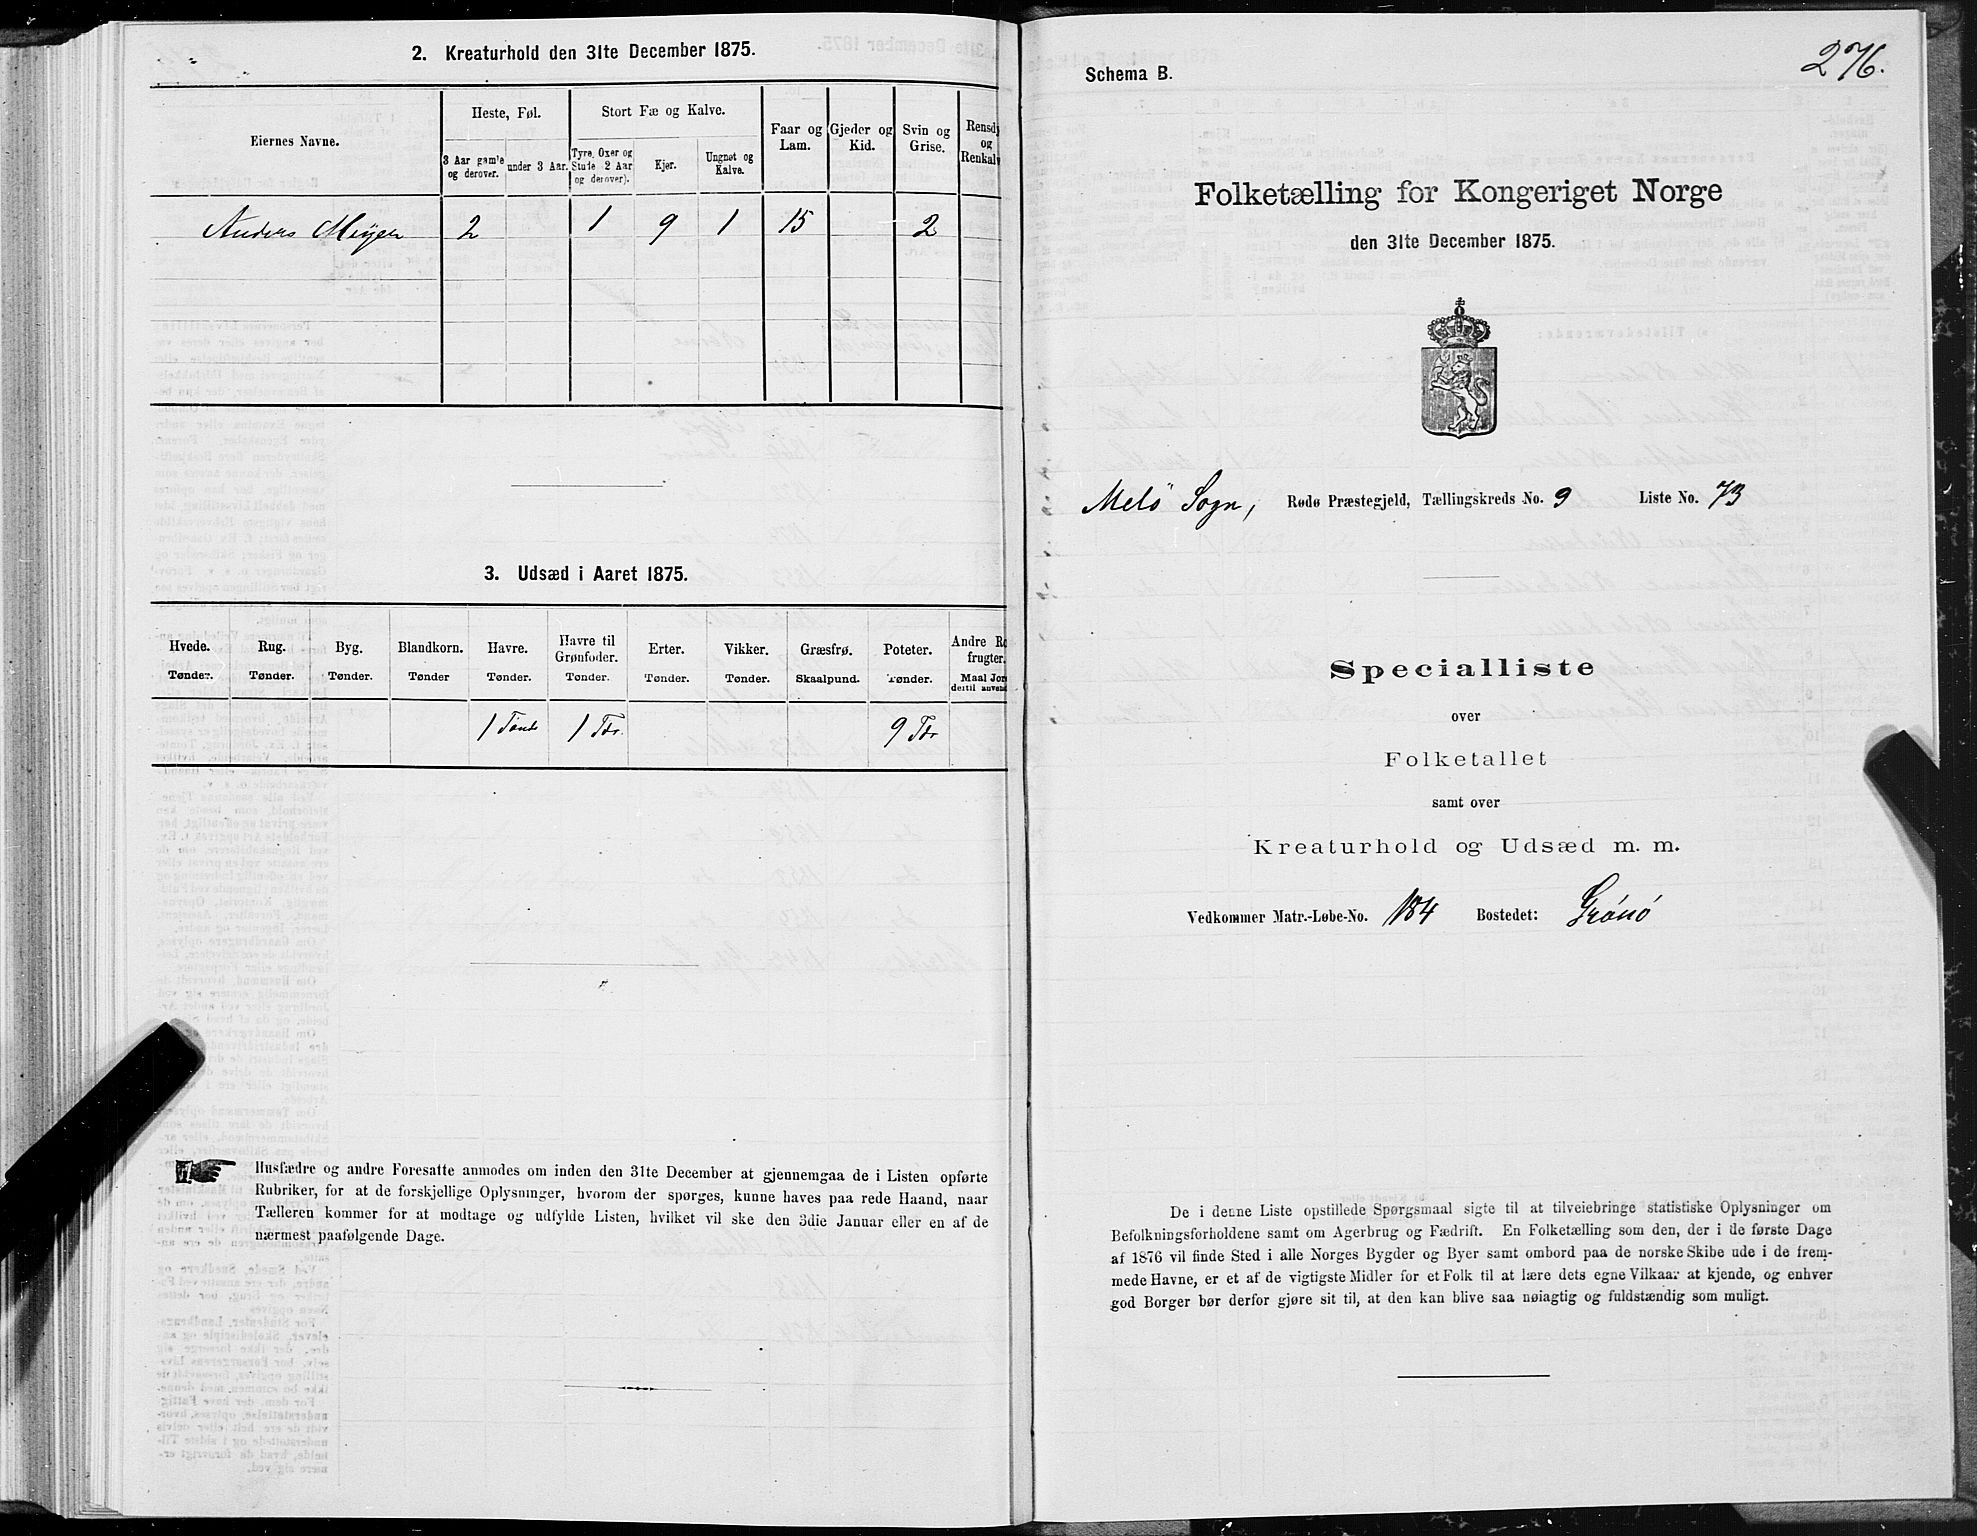 2. Kreaturhold den 31te December 1875.
Eiernes Navne.
Heste, Føl.
Stort Fæ og Kalve.
Faar og Lam.
Gjeder og Kid.
Svin og Grise.
Rensd
og
Renkalv
3 Aar gamle og derover.
under 3 Aar.
Tyre, Oxer og Stude (2 Aar og derover).
Kjør.
Ungnøt og Kalve.
Anders Meyer 2 1 9 1 15 2
3. Udsæd i Aaret 1875.
Hvede. Rug. Byg. Blandkorn. Havre. Havre til Grønfoder. Erter. Vikker. Græsfrø. Poteter. Andre Ro
frugter.
Tønder. Tønder. Tønder. Tønder Tønder. Tønder. Tønder. Tønder. Skaalpund. Tønder. Maal Jor
dertil anvend
1 Tønde 1 Tdr. 9 Tdr
Husfædre og andre Foresatte anmodes om inden den 31te December at gjennemgaa de i Listen opførte
Rubriker, for at de forskjellige Oplysninger, hvorom der spørges, kunne haves paa rede Haand, naar
Tælleren kommer for at modtage og udfylde Listen, hvilket vil ske den 3die Januar eller en af de
nærmest paafølgende Dage.
276.
Schema B.
Folketælling for Kongeriget Norge
den 31te December 1875.
Melö Sogn, Rødø Præstegjeld, Tællingskreds No. 9 Liste No. 73
Specialliste
over
Folketallet
samt over
Kreaturhold og Udsæd m. m.
Vedkommer Matr.-Løbe-No. 184 Bostedet: Grönö
De i denne Liste opstillede Spørgsmaal sigte til at tilveiebringe statistiske Oplysninger om
Befolkningsforholdene samt om Agerbrug og Fædrift. En Folketælling som den, der i de første Dage
af 1876 vil finde Sted i alle Norges Bygder og Byer samt ombord paa de norske Skibe ude i de frem-
mede Havne, er et af de vigtigste Midler for et Folk til at lære dets egne Vilkaar at kjende, og enhver
god Borger bør derfor gjøre sit til, at den kan blive saa nøiagtig og fuldstændig som muligt.